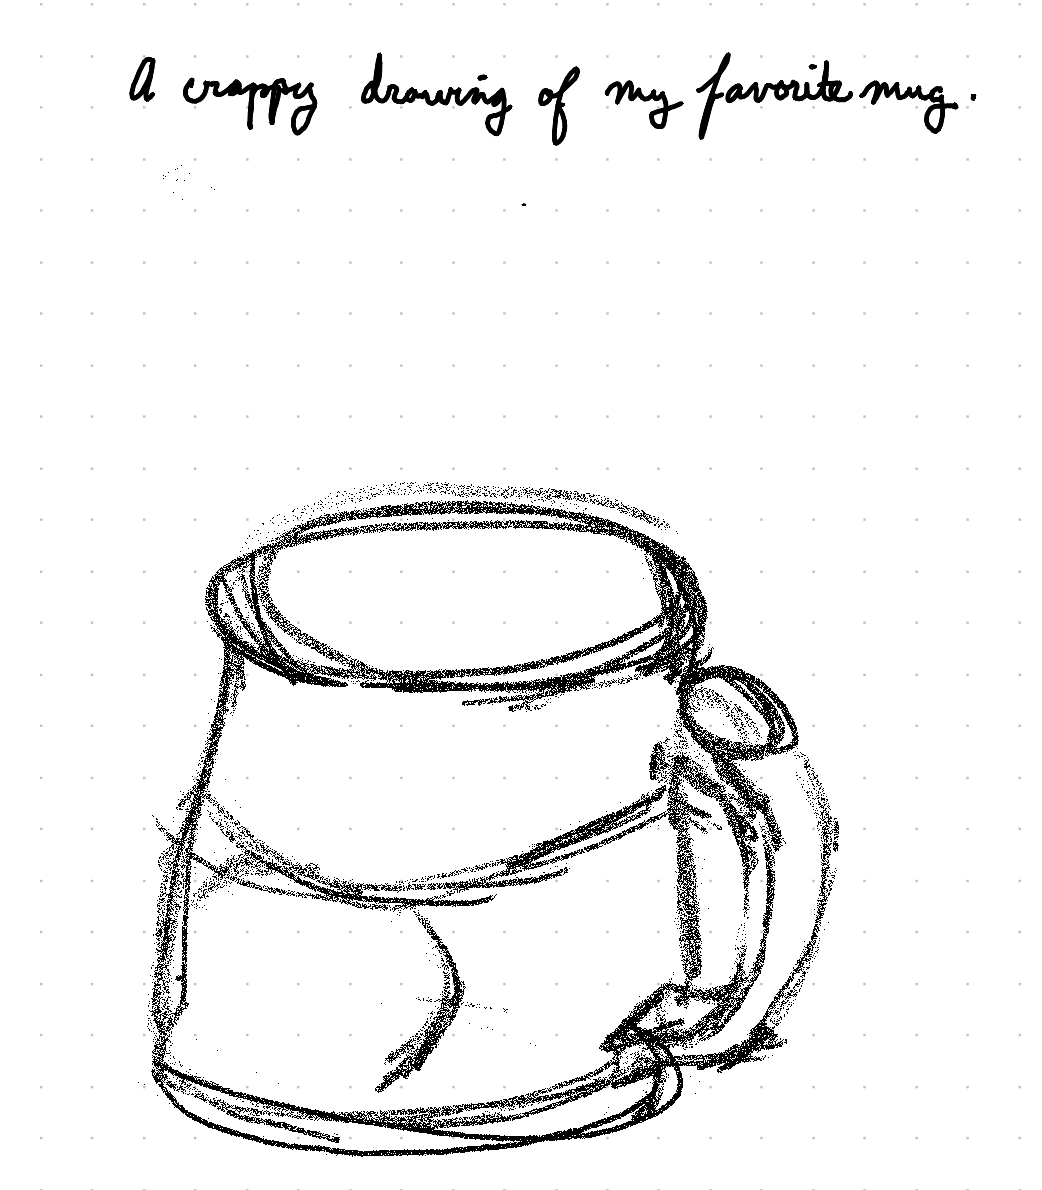 A crappy drawing of my favorite mug.